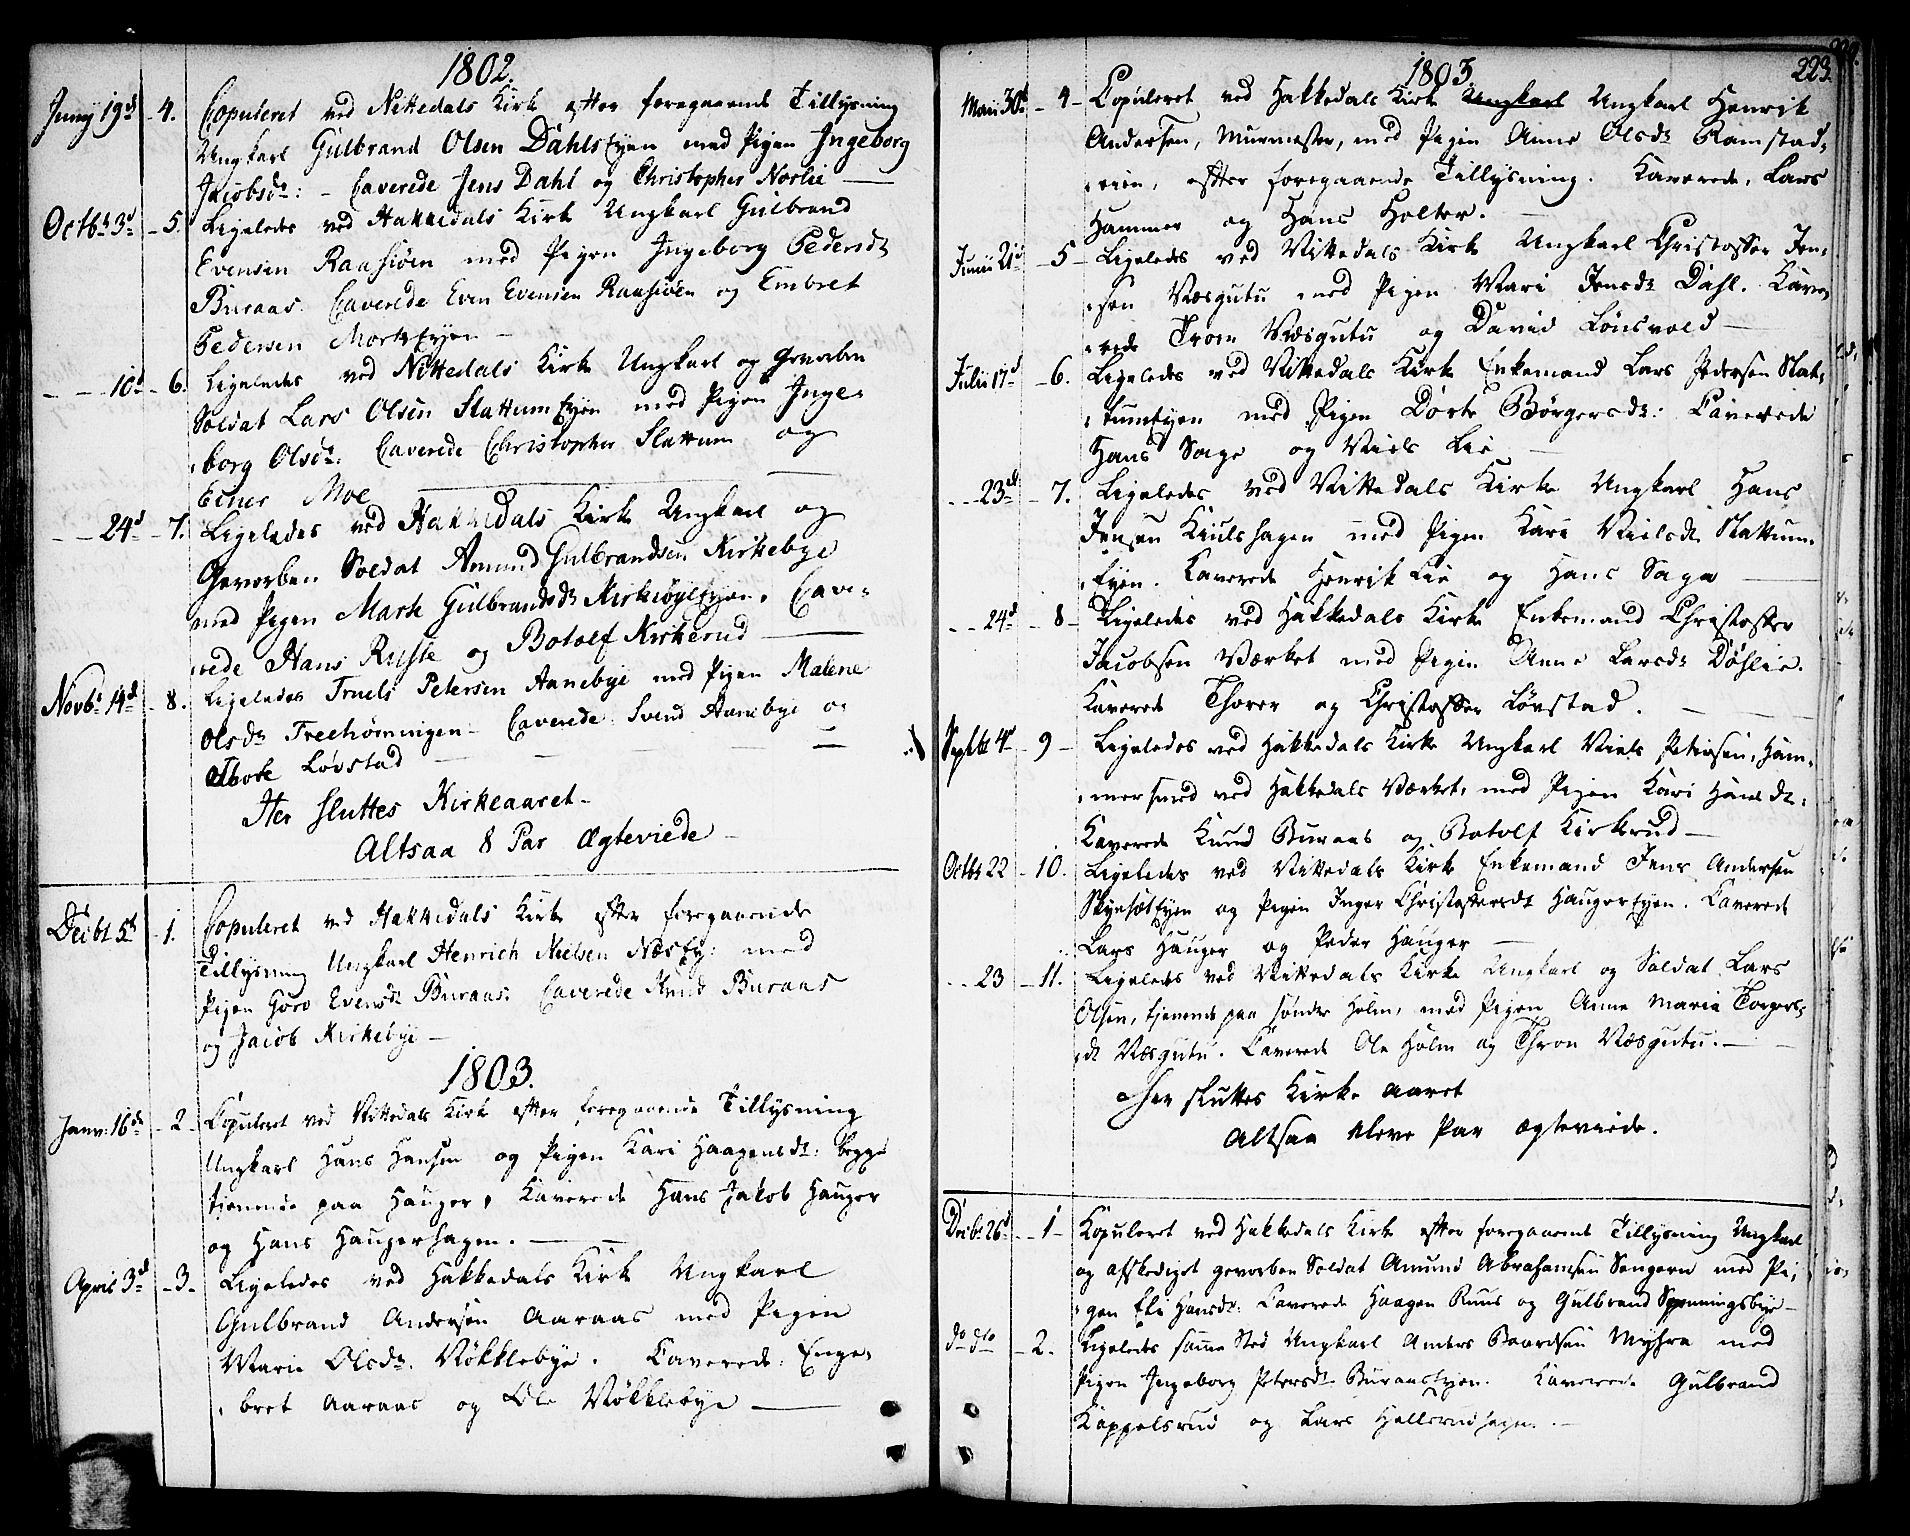 1802.
Juny 19d - 4. Copuleret ved Nittedals Kirke efter foregaaende Tillysning
Ungkarl Gulbrand Olsen DahlsEyen med Pigen Ingeborg
Jacobsdr: - Caverede Jens Dahl og Christopher Norlie
Octbr 3d - 5. Ligeledes ved Hakkedals Kirke Ungkarl Gulbrand
Evensen Raasiøen med Pigen Ingeborg Pedersdr
Buraas. Caverede Even Evensen Raasiøen og Embret
Pedersen MorkEyen
- - 10d - 6. Ligeledes ved Nittedals Kirke Ungkarl og Gevorben
Soldat Lars Olsen SlattumEyen med Pigen Inge-
borg Olsdr: Caverede Christopher Slattum og
Moe
- - 24d - 7. Ligeledes ved Hakkedals Kirke Ungkarl og
Gevorben Soldat Amund Gulbrandsen Kirkebye
med Pigen Marte Gulbrandsdr Cave-
rede Hans Ruste og Botolf Kirkerud
Novbr 14d - 8. Ligeledes Truels Petersen Aanebye med Pigen Malene
Olsdr Treehørningen - Caverede Svend Aanebye og
Thore Løvstad
Her Sluttes Kirkeaaret -
Altsaa 8 Par Ægteviede -
Decbr 5t - 1. Copuleret ved Hakkedals Kirke efter foregaaende
Tillysning Ungkarl Henrich Nielsen NæsEy: med
Pigen Goro Evensdr Buraas. Caverede Knud Buraas
og Jacob Kirkebye -
1803.
Janv: 16de - 2 - Copuleret ved Nittedals Kirke efter foregaaende Tillysning
Ungkarl Hans Hansen og Pigen Kari Haagensdr: begge
tienende paa Hauger, Kaverede Hans Jakob Hauger
og Hans Haugerhagen.
April 3d - 3 - Ligeledes ved Hakkedals Kirke Ungkarl
Gulbrand Andersøn Aaraas med Pigen
Marie Olsdr. Møkklebye. Caverede: Enge-
bret Aaraas og Ole Møkklebye
1803.
223.
Maii 30d - 4 - Copuleret ved Hakkedals Kirke Ungkarl Ungkarl Henrik
Andersen, Murmester, med Pigen Anne Olsdr Ramstad-
eien, efter foregaaende Tillysning. Kaverede, Lars
Hammer og Hans Holter.
Junii 21d - 5 - Ligeledes ved Nittedals Kirke Ungkarl Christoffer Jen-
sen Næsgutu med Pigen Mari Jensdr Dahl. Kave-
rede Tron Næsgutu og David Lønsvold
Julii 17d - 6. Ligeledes ved Nittedals Kirke Enkemand Lars Pedersen Slat-
tumEyen med Pigen Dorte Børgersdr: Caverede
Hans Sage og Niels Lie
- - 23d - 7. Ligeledes ved Nittedals Kirke Ungkarl Hans
Jensen Kiulshagen med Pigen Kari Nielsdr Slattum-
Eyen. Caverede Henrik Lie og Hans Sage
- - 24d - 8 - Ligeledes ved Hakkedals Kirke Enkemand Christoffer
Jacobsen Værket med Pigen Anne Larsdr Døhlie.
Kaverede Thorer og Christoffer Løvstad.
Septbr 4d - 9 - Ligeledes ved Hakkedals Kirke Ungkarl Niels Petersen, Ham-
mersmed ved Hakkedals Værket, med Pigen Kari Hansdr:
Kaverede Knud Buraas og Botolf Kirkerud -
Octbr 22 - 10. Ligeledes ved Nittedals Kirke Enkemand Jens Andersen
SkyssetEyen og Pigen Inger Christoffersdr HaugerEyen. Caverede
Lars Hauger og Peder Hauger
- - 23 - 11. Ligeledes ved Nittedals Kirke Ungkarl og Soldat Lars
Olsen, tjenende paa søndre Holm, med Pigen Anne Maria Torgers-
dr Næsgutu. Caverede Ole Holm og Thron Næsgutu.
Her sluttes Kirke aaret
Altsaa eleve Par ægteviede.
Decbr 26d - 1 - Kopuleret ved Hakkedals Kirke efter foregaaende Tillysning Ungkarl
og afskediget gevorben Soldat Amund Abrahamsen Sengern med Pi-
gen Eli Hansdr: Caverede Haagen Ruus og Gulbrand Spenningsbye -
do dto - 2. Ligeledes samme Sted Ungkarl Anders Baardsen Myhre med
Pigen Ingeborg Petersdr BuraasEyen. Kaverede Gulbrand
Kappelsrud og Lars Hellerudhagen.